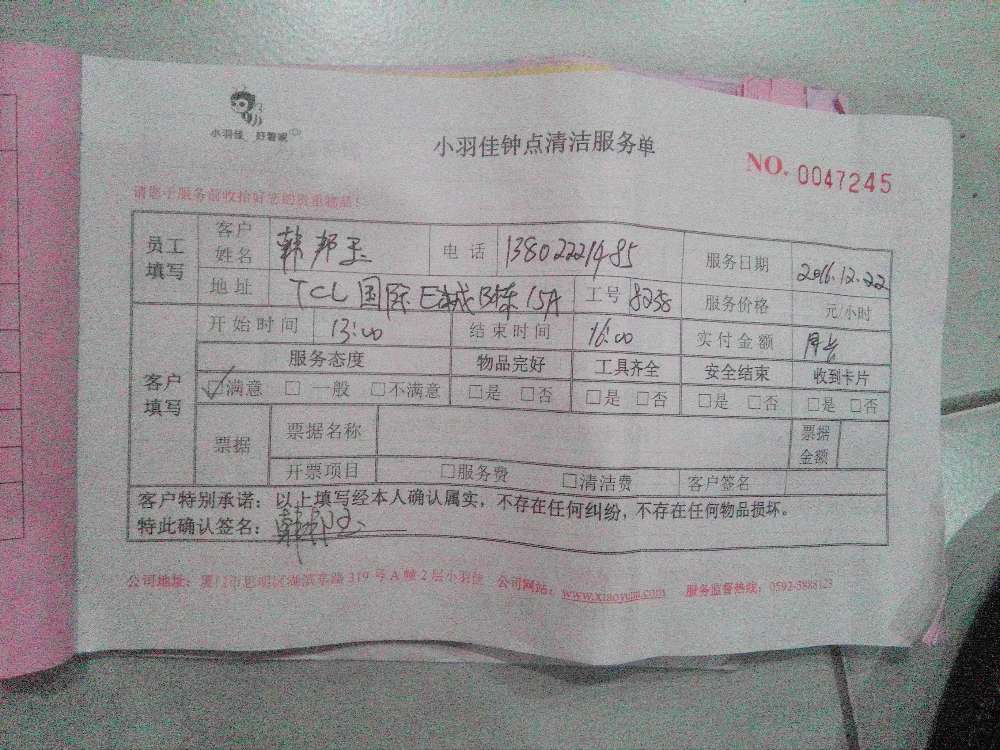 小羽佳 好管家
小羽佳钟点清洁服务单
NO. 0047245
请您于服务前收拾好您的贵重物品!
员工填写 客户姓名 韩邦玉 电话 13802221485 服务日期 2016.12.22
地址 TCL国际E城B栋15A 工号 8238 服务价格 元/小时
客户填写 开始时间 13:00 结束时间 16:00 实付金额
服务态度 物品完好 工具齐全 安全结束 收到卡片
☑满意 □一般 □不满意 □是 □否 □是 □否 □是 □否 □是 □否
票据 票据名称 票据金额
开票项目 □服务费 □清洁费 客户签名
客户特别承诺：以上填写经本人确认属实，不存在任何纠纷，不存在任何物品损坏。
特此确认签名：韩邦玉
公司地址：厦门市思明区湖滨东路319号A幢2层小羽佳 公司网站：www.xiaoyujia.com 服务监督热线：0592-5888123